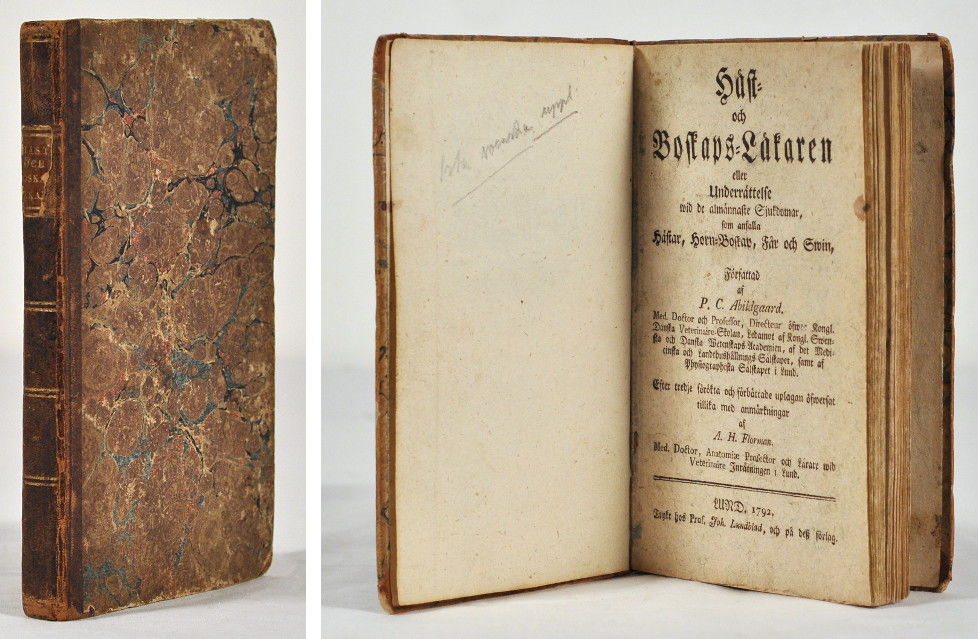 HÄST
OCH
1sta svenska uppl.
Häst-
och
Boskaps-Läkaren
eller
Underrättelse
wid de almännaste Sjukdomar,
som anfalla
Hästar, Horn-Boskap, Får och Swin,
Författad
af
P. C. Abildgaard.
Med. Doctor och Professor, Directeur öfwer Kongl.
Danska Veterinaire-Skolan, Ledamot af Kongl. Swen-
ska och Danska Wetenskaps-Academien, af det Medi-
cinska och Landthushållnings Sälskapet, samt af
Physiographiska Sälskapet i Lund.
Efter tredje förökta och förbättrade uplagan öfwersat
tillika med anmärkningar
af
A. H. Florman.
Med. Doctor, Anatomiæ Prosector och Lärare wid
Veterinaire Inrätningen i Lund.
LUND, 1792,
Tryckt hos Prof. Joh. Lundblad, och på dess förlag.